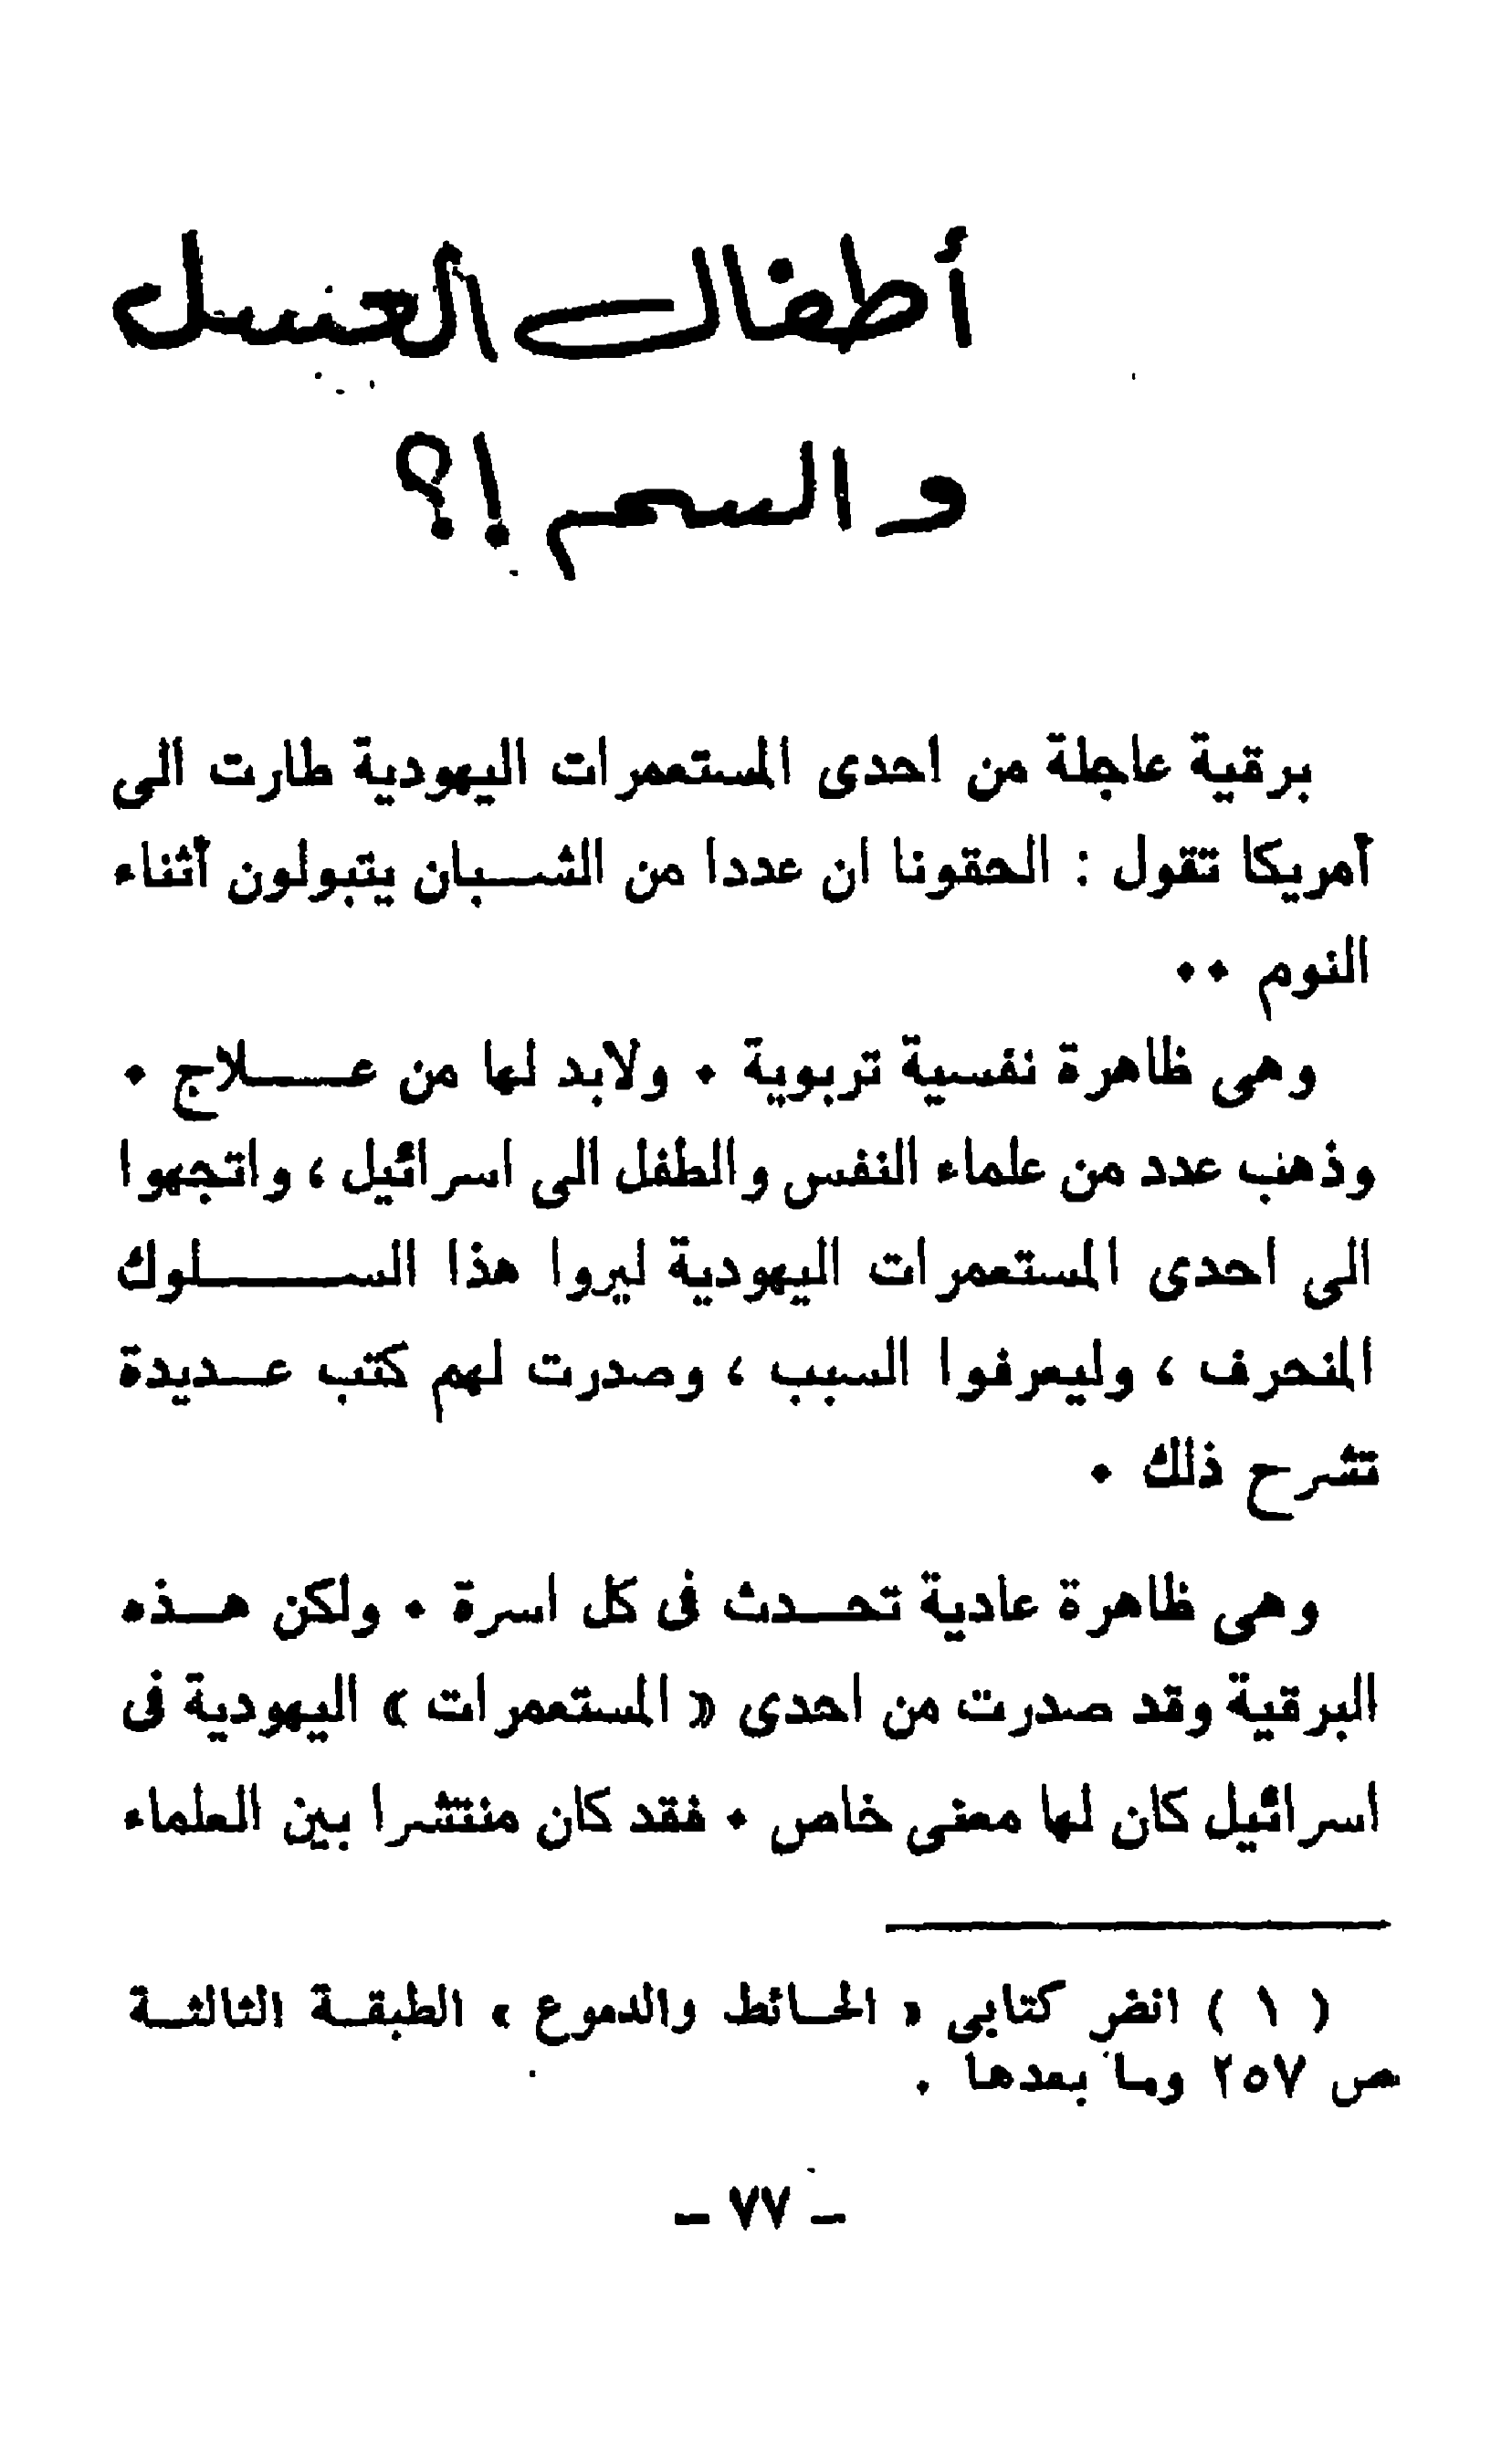 أطفال العسل
والسم !؟
برقية عاجلة من احدى المستعمرات اليهودية طارت الى
أمريكا تقول : الحقونا ان عددا من الشبان يتبولون أثناء
النوم ..
وهى ظاهرة نفسية تربوية . ولابد لها من علاج .
وذهب عدد من علماء النفس والطفل الى اسرائيل ، واتجهوا
الى احدى المستعمرات اليهودية ليروا هذا السلوك
المنحرف ، وليعرفوا السبب ، وصدرت لهم كتب عديدة
تشرح ذلك .
وهى ظاهرة عادية تحدث فى كل اسرة . ولكن هذه
البرقية وقد صدرت من احدى « المستعمرات » اليهودية فى
اسرائيل كان لها معنى خاص . فقد كان منتشرا بين العلماء
( ١ ) انضر كتابى « الحائط والدموع » الطبقة الثالثة
ص ٢٥٧ وما بعدها .
- ٧٧ -